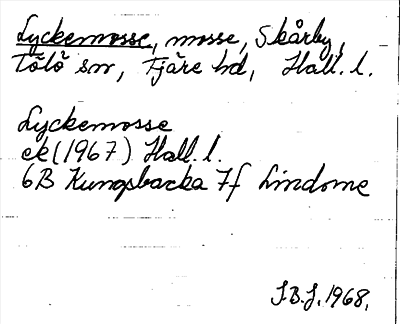 Lyckemosse, mosse, Skårby,
Tölö sn, Fjäre hd, Hall. l.
Lyckemosse
ek (1967) Hall. l.
6B Kungsbacka 7f Lindome
S.B.J. 1968.